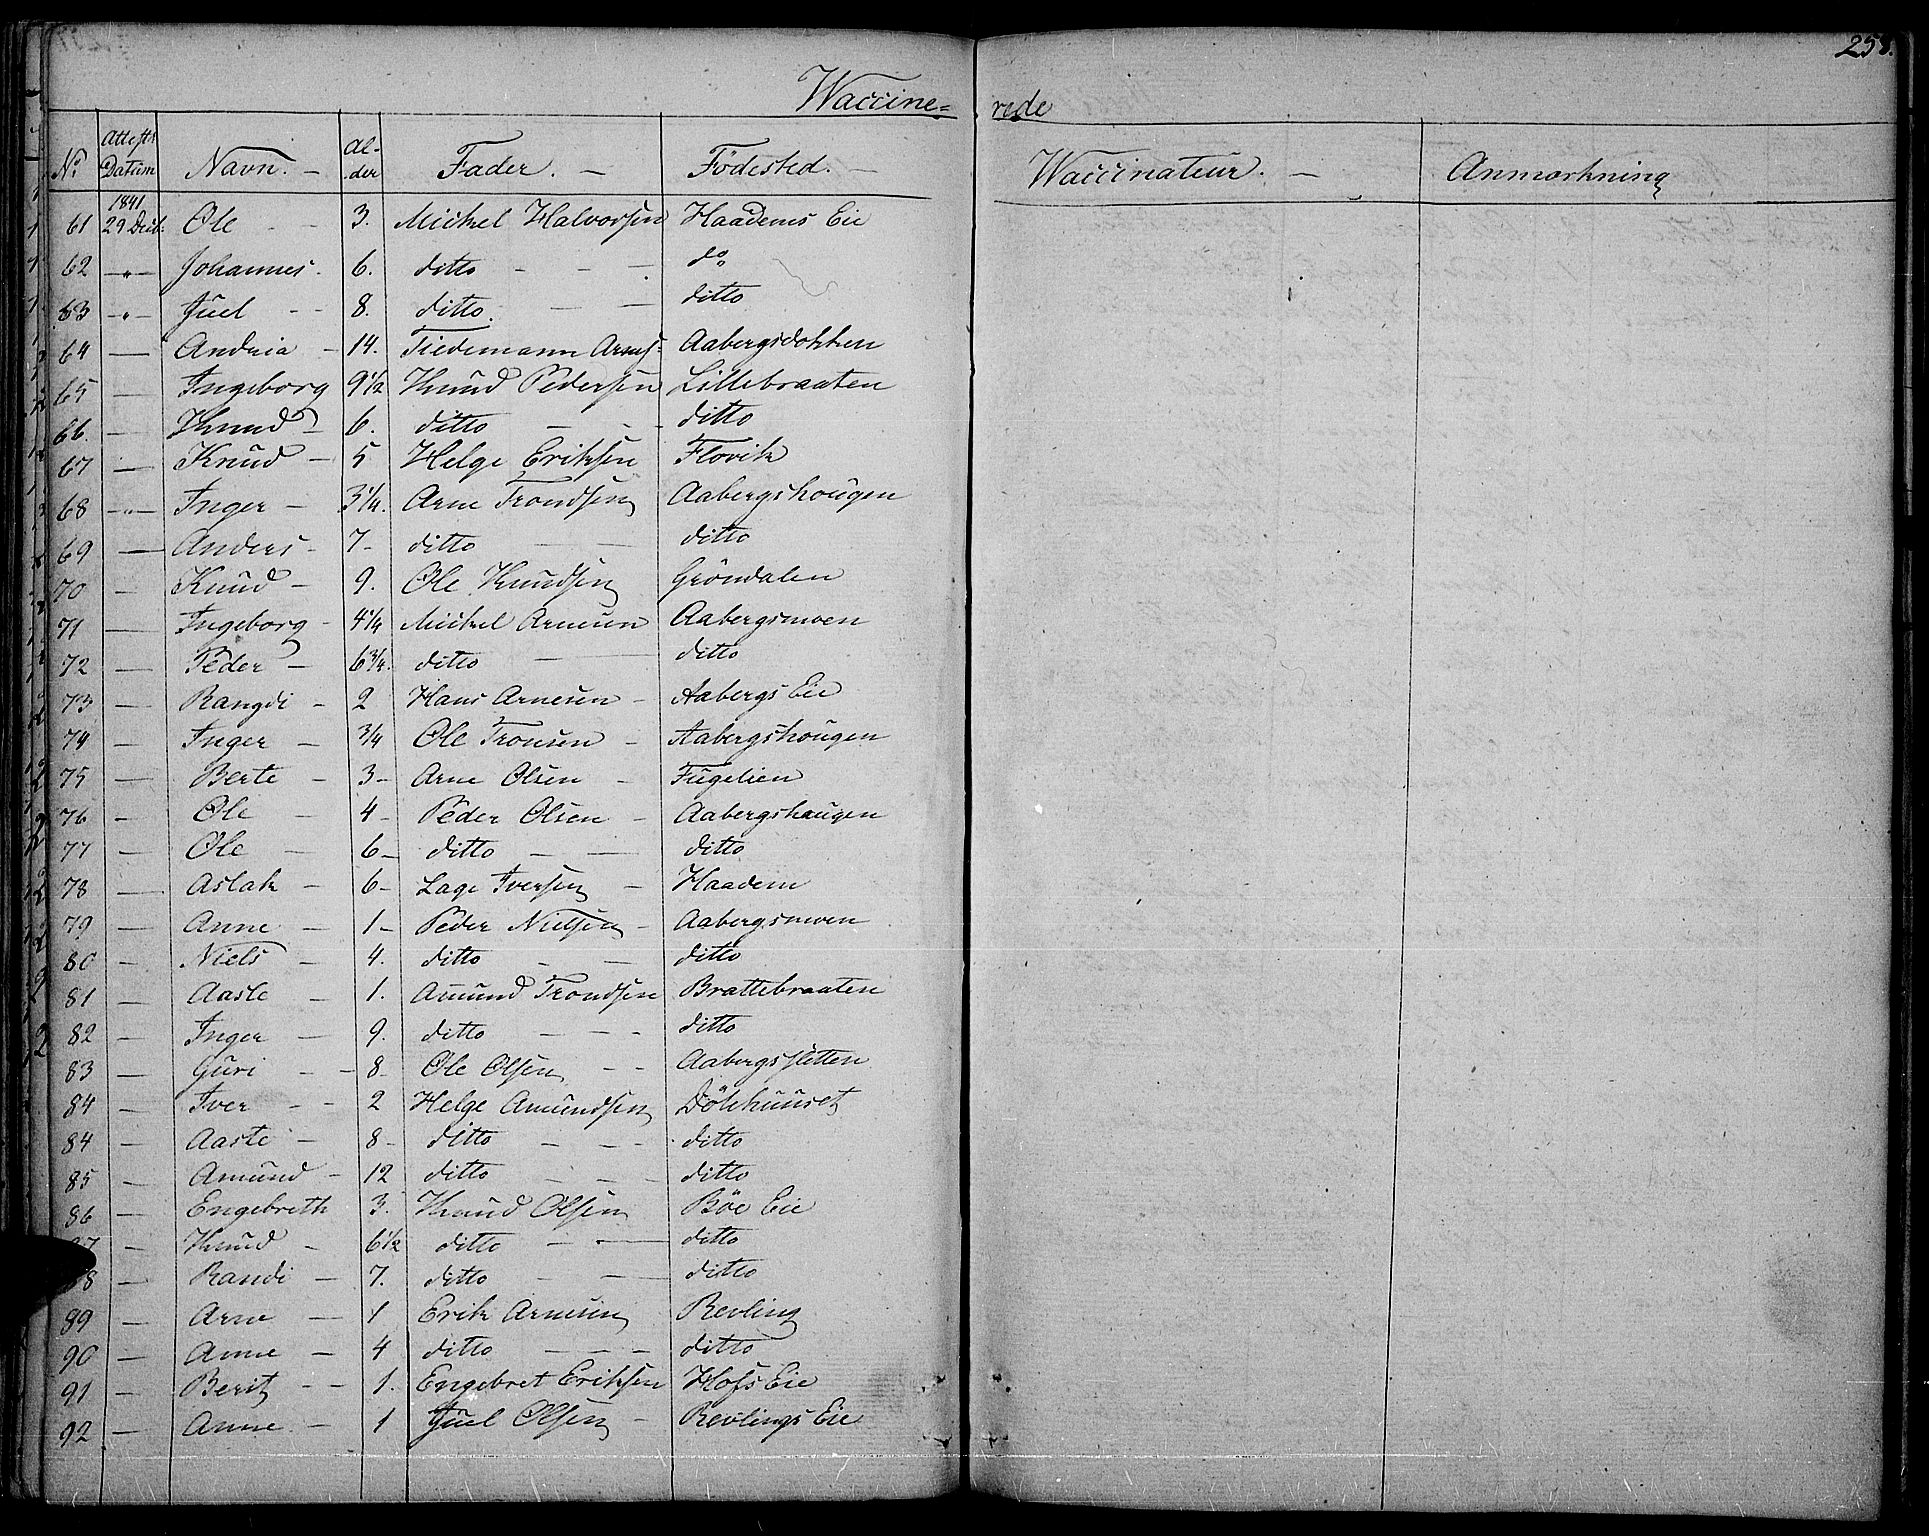 258.
Waccine= rede
No Attests Datum Navn. — Al-der Fader. — Födested. — Waccinateur. — Anmærkning
1841
61 29 Decb: Ole — 3. Mickel Halvorsen Haadems Eie
62 —"— Johannes. 6. ditto — — do
63 —"— Juel — 8. ditto. — — ditto
64 — Andria — 14. Tiedemann Arnes: Aabergsdokken
65 — Ingeborg 9½ Knud Pedersen Lillebraaten
66. — Knud — 6. ditto — — ditto
67 — Knud — 5 Helge Eriksen Flovik
68 —"— Inger — 3¼. Arne Trondsen Aabergshougen
69 — Anders — 7 — ditto — — ditto
70 — Knud — 9. Ole Knudsen Gröndalen
71 — Ingeborg — 4¼ Mickel Arnesen Aabergsmoen
72 — Peder — 6¾. ditto — ditto
73 — Rangdi — 2 Hans Arnesen — Aabergs Eie
74 — Inger — ¾ Ole Tronsen — Aabergshougen
75 — Berte — 3 — Arne Olsen — Fugelien
76 — Ole — 4 — Peder Olsen — Aabergshaugen
77 — Ole — 6 — ditto — — ditto
78 — Aslak — 6 — Lage Iversen — Haadem
79 — Anne — 1 — Peder Nielsen — Aabergsmoen
80 — Niels — 4. ditto — — ditto
81 — Aaste — 1. Amund Trondsen Brattebraaten
82 — Inger — 9. ditto — — — ditto
83 — Guri — — 8 — Ole Olsen — — Aabergssletten
84 — Iver — — 2 Helge Amundsen Dökhuuset
84 — Aaste — 8 — ditto — — — ditto
85 — Amund — 12 ditto — — ditto
86 — Engebreth 3. Knud Olsen Böe Eie
87 — Knud — 6½ ditto — — ditto
88 — Randi — 7. ditto — — ditto
89 — Arne — 1 Erik Arnesen Revling
90 — Anne — 4 ditto — — — ditto
91 — Berit — — 1. Engebret Eriksen Hofs Eie
92 — Anne — 1 Juel Olsen — Revlings Eie